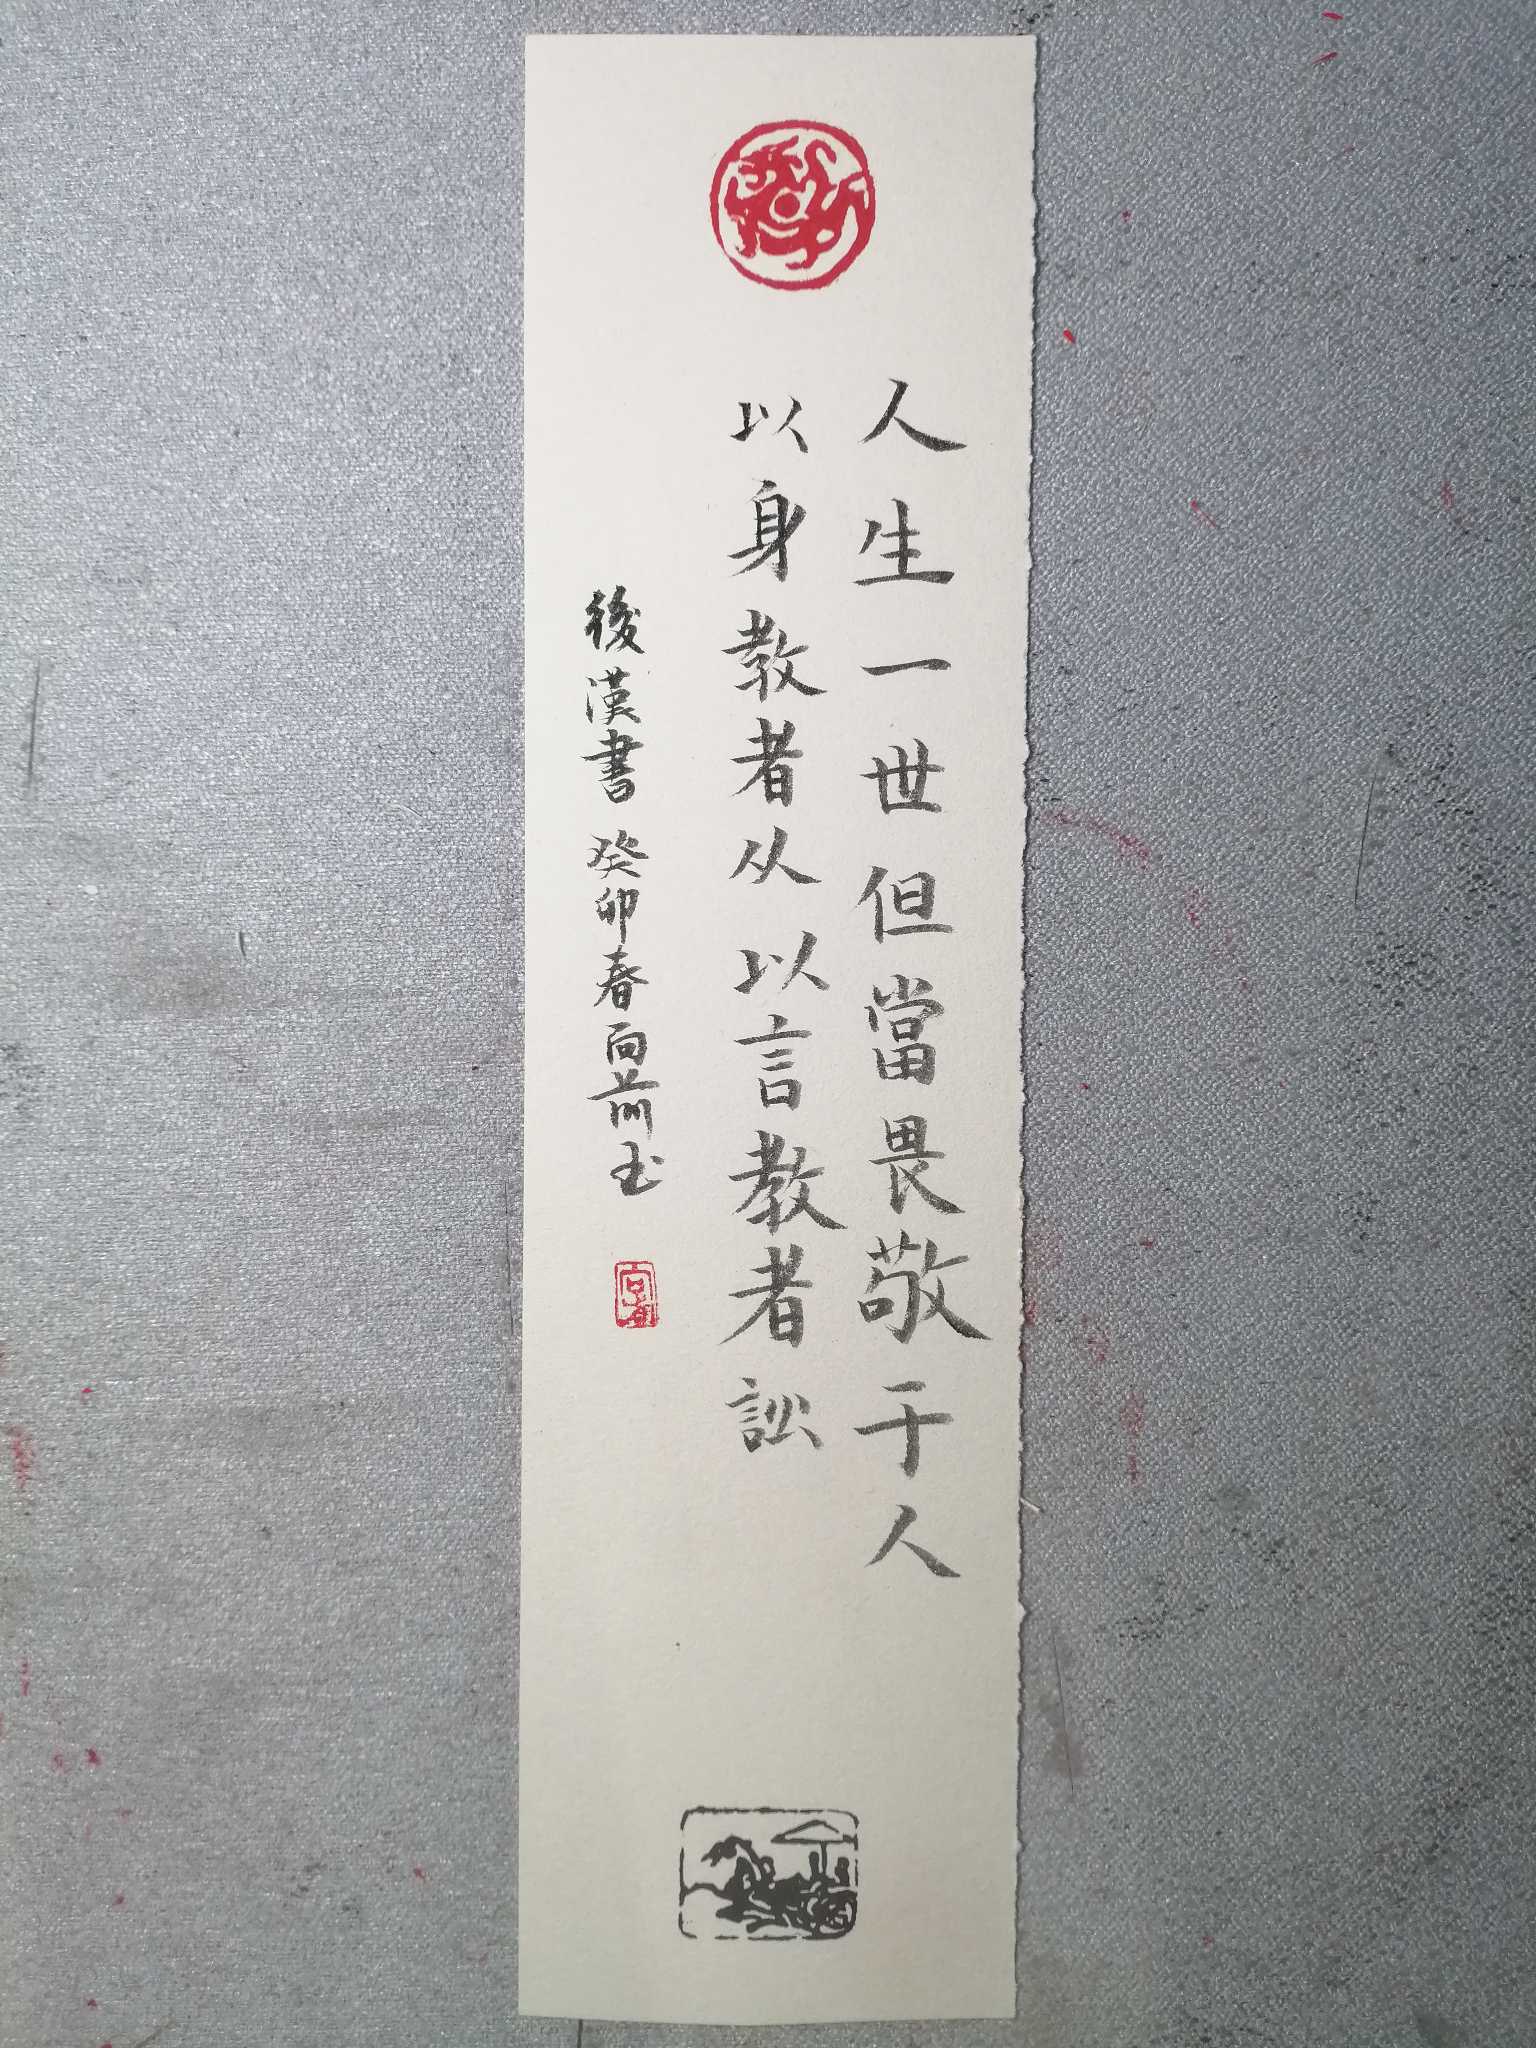 人生一世但當畏敬于人
以身教者从以言教者訟
後漢書 癸卯春向前玉